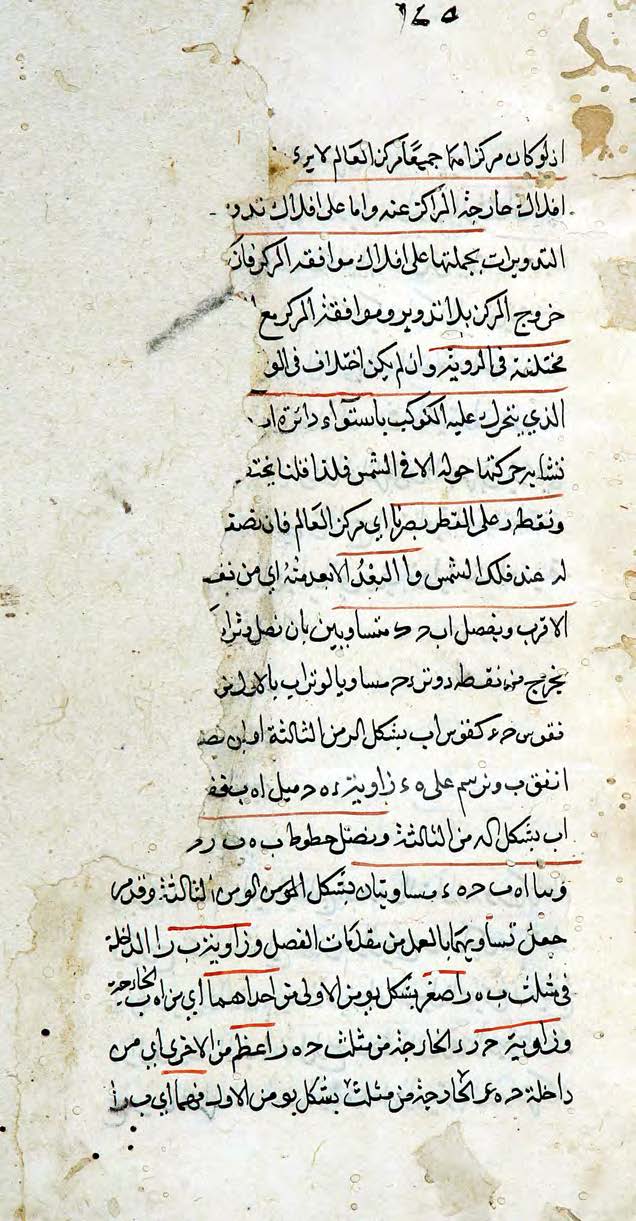 ١٤٥
اذ لو كان مركزاهما جميعًا مركز العالم لا يرى
افلاك خارجة المراكز عنه واما على افلاك تدو
التدويرات بجملتها على افلاك موافقة المركز فان
خروج المركز بلا تدوير وموافقة المركز مع
مختلفة فى الروية وان لم يكن اختلاف فى الو
الذي يتحرك عليه الكوكب باستوآء دائرة ا
تشابه حركتها حوله الا فى الشمس فلذا قلنا
ونقطة د على القطر بصرنا اى مركز العالم فان
له عند فلك الشمس و ا البعدُ الابعد منهُ اى من
الاقرب ونفصل ا ب ح ء متساويين بان نصل وترا
يخرج من نقطة د وتر ء ح مساويا لوتر ا ب بالاولى من
فقوس ح ء كقوس ا ب بشكل الد من الثالثة او بان
اتفق ب ونرسم على ه ء زاوية ء ه ح مثل ا ه ب
ا ب بشكل اله من الثالثة ونصل خطوط ب ه ب ر ح
وبنا ا ه ب ح ه ء متساويتان بشكل من الثالثة وقد مر
جعل تساويهما بالعمل من مقدمات الفصل وزاوية ب ر الداخلة
فى مثلث ب ه ر اصغر بشكل يو من الاولى من احداهما اى من ا ه ب الخارجة
وزاوية ح ر ء الخارجة من مثلث ح ه ر اعظم من الاخرى اى من
داخلة ح ه ء الخارجة من مثلث بشكل يو من الاولى فهما اى ب ر ا